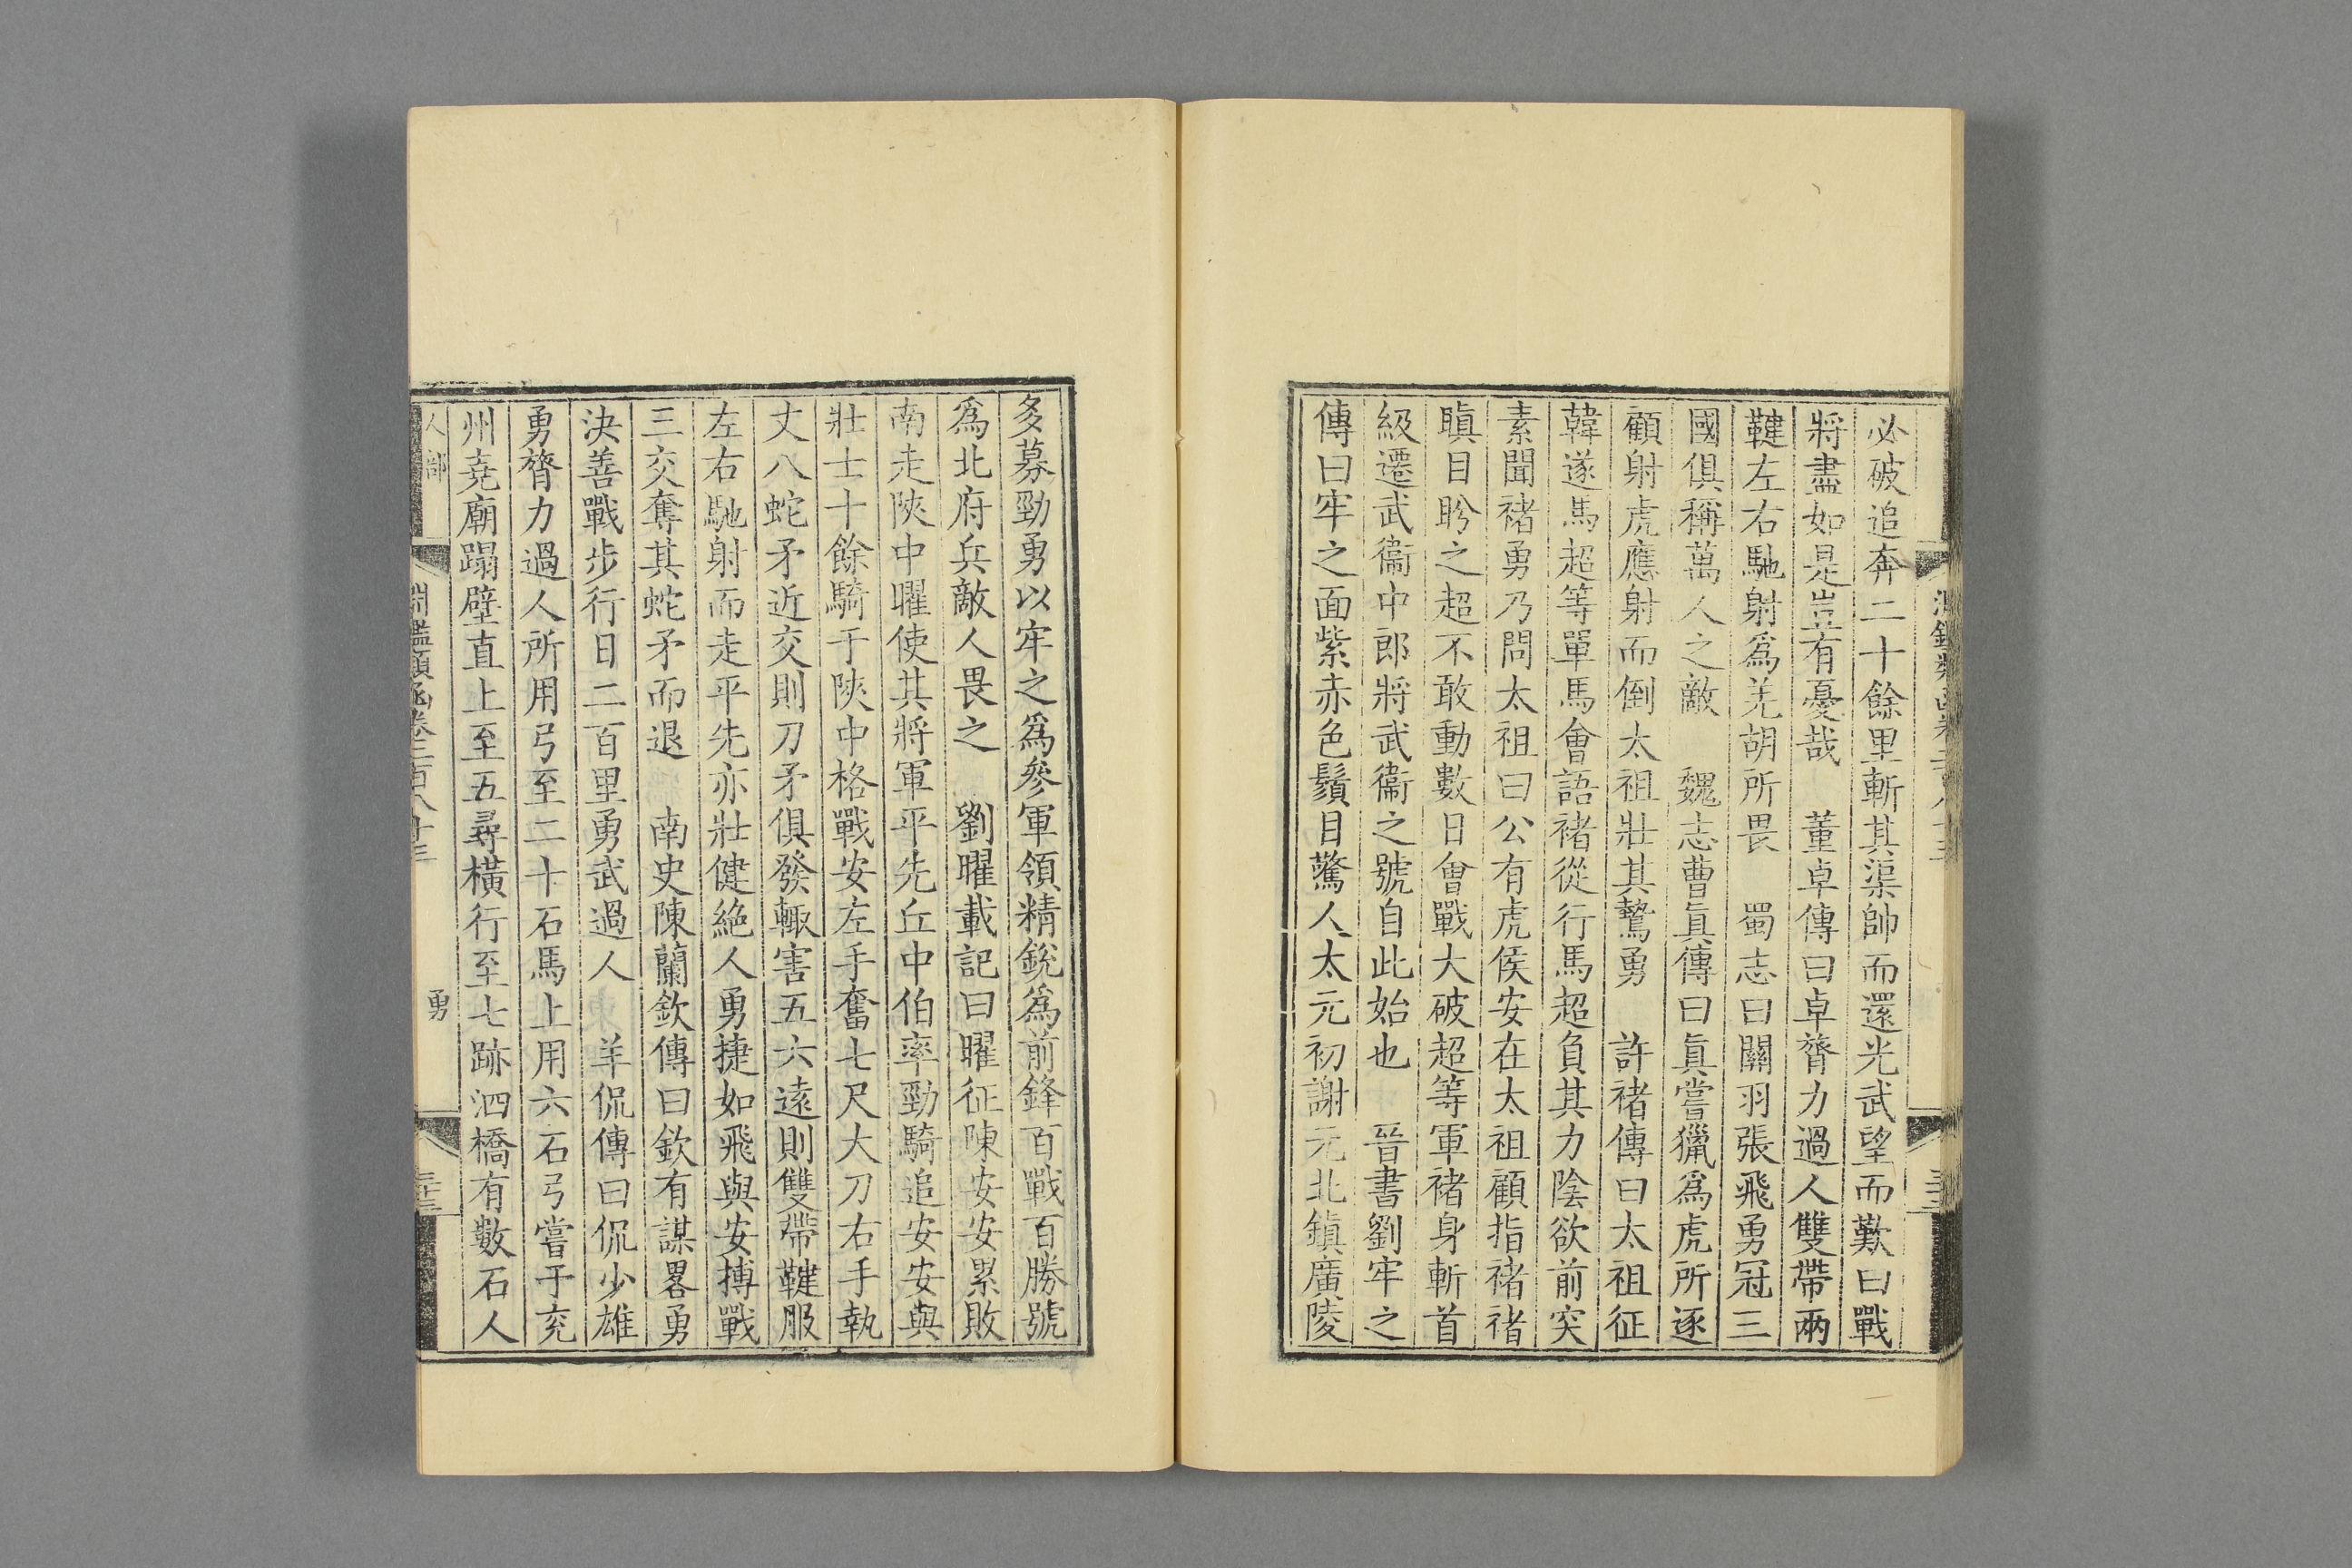 必破追奔二十餘里斬其渠帥而還光武望而歎曰戰
將盡如是豈有憂哉　董卓傳曰卓膂力過人雙帶兩
鞬左右馳射爲羌胡所畏　蜀志曰關羽張飛勇冠三
國俱稱萬人之敵　魏志曹眞傳曰眞嘗獵爲虎所逐
顧射虎應射而倒太祖壯其鷙勇　許褚傳曰太祖征
韓遂馬超等單馬會語褚從行馬超負其力陰欲前突
素聞褚勇乃問太祖曰公有虎侯安在太祖顧指褚褚
瞋目盼之超不敢動數日會戰大破超等軍褚身斬首
級遷武衞中郎將武衞之號自此始也　晉書劉牢之
傳曰牢之面紫赤色鬚目驚人太元初謝元北鎮廣陵
多募勁勇以牢之爲參軍領精銳爲前鋒百戰百勝號
爲北府兵敵人畏之　劉曜載記曰曜征陳安安累敗
南走陜中曜使其將軍平先丘中伯率勁騎追安安與
壯士十餘騎于陜中格戰安左手奮七尺大刀右手執
丈八蛇矛近交則刀矛俱發輙害五六遠則雙帶鞬服
左右馳射而走平先亦壯健絶人勇捷如飛與安搏戰
三交奪其蛇矛而退　南史陳蘭欽傳曰欽有謀畧勇
決善戰步行日二百里勇武過人　羊侃傳曰侃少雄
勇膂力過人所用弓至二十石馬上用六石弓嘗于兖
州堯廟蹋壁直上至五尋橫行至七跡泗橋有數石人
人部　淵鑑類函卷二百八十三　勇